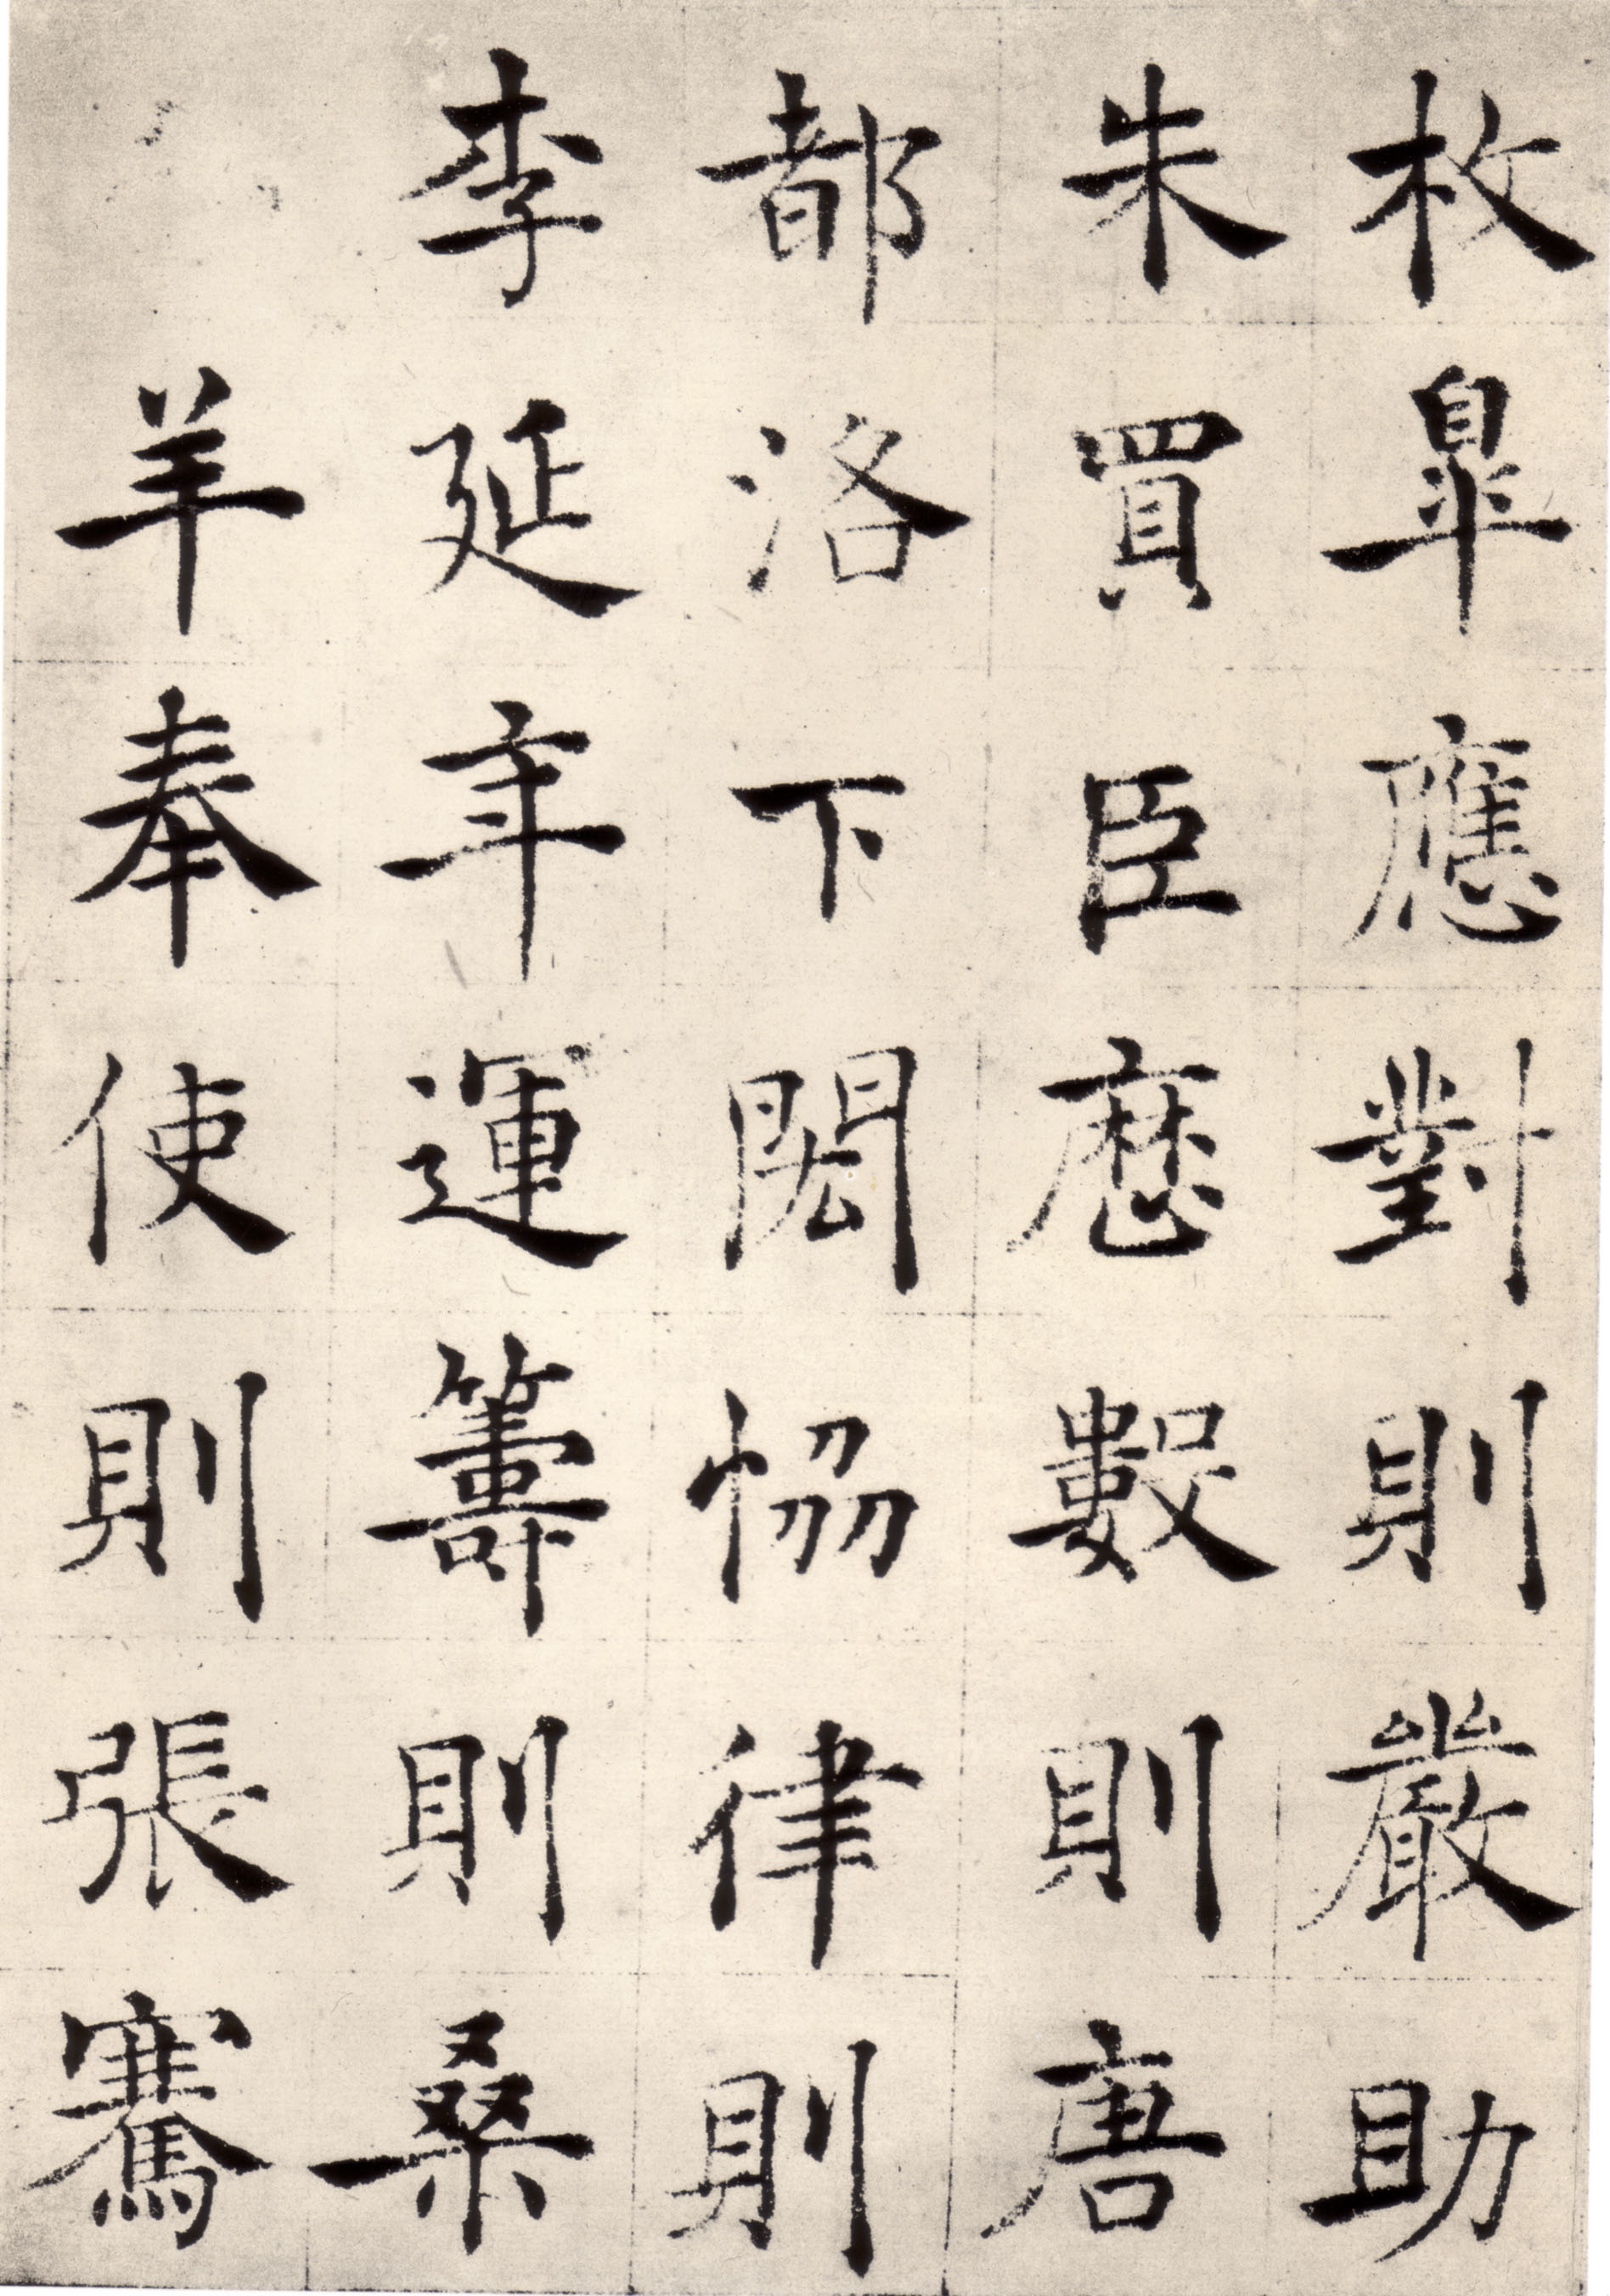 枚皐應對則嚴助
朱買臣歷數則唐
都洛下閎恊律則
李延年運籌則桑
羊奉使則張騫